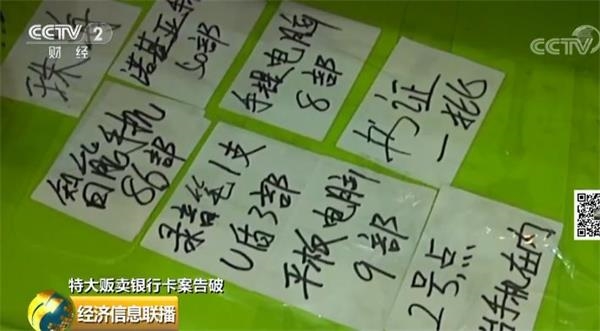 CCTV 2
财经
CCTV
诺基亚
60部
手提电脑
8部
书证
一批
智能手机
86部
录音笔1支
U盾3部
平板电脑
9部
2号点
手机在内
特大贩卖银行卡案告破
经济信息联播